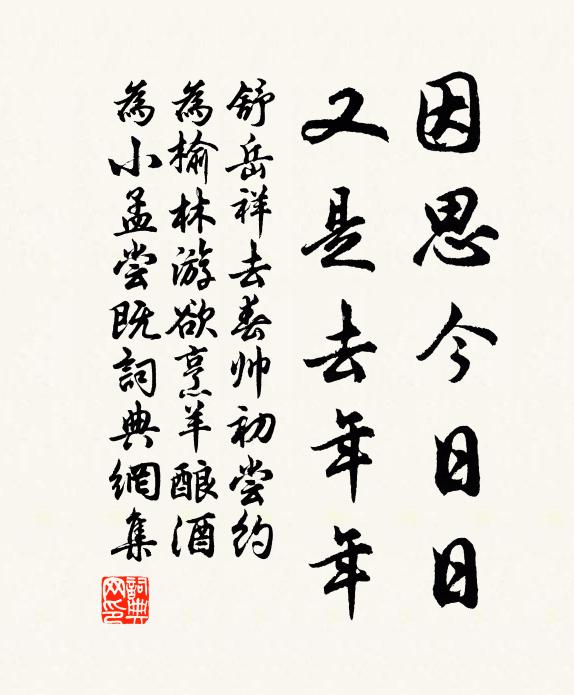 因思今日日
又是去年年
舒岳祥去春帅初尝约
為榆林游欲烹羊酿酒
為小孟尝既詞典網集
詞典
网印